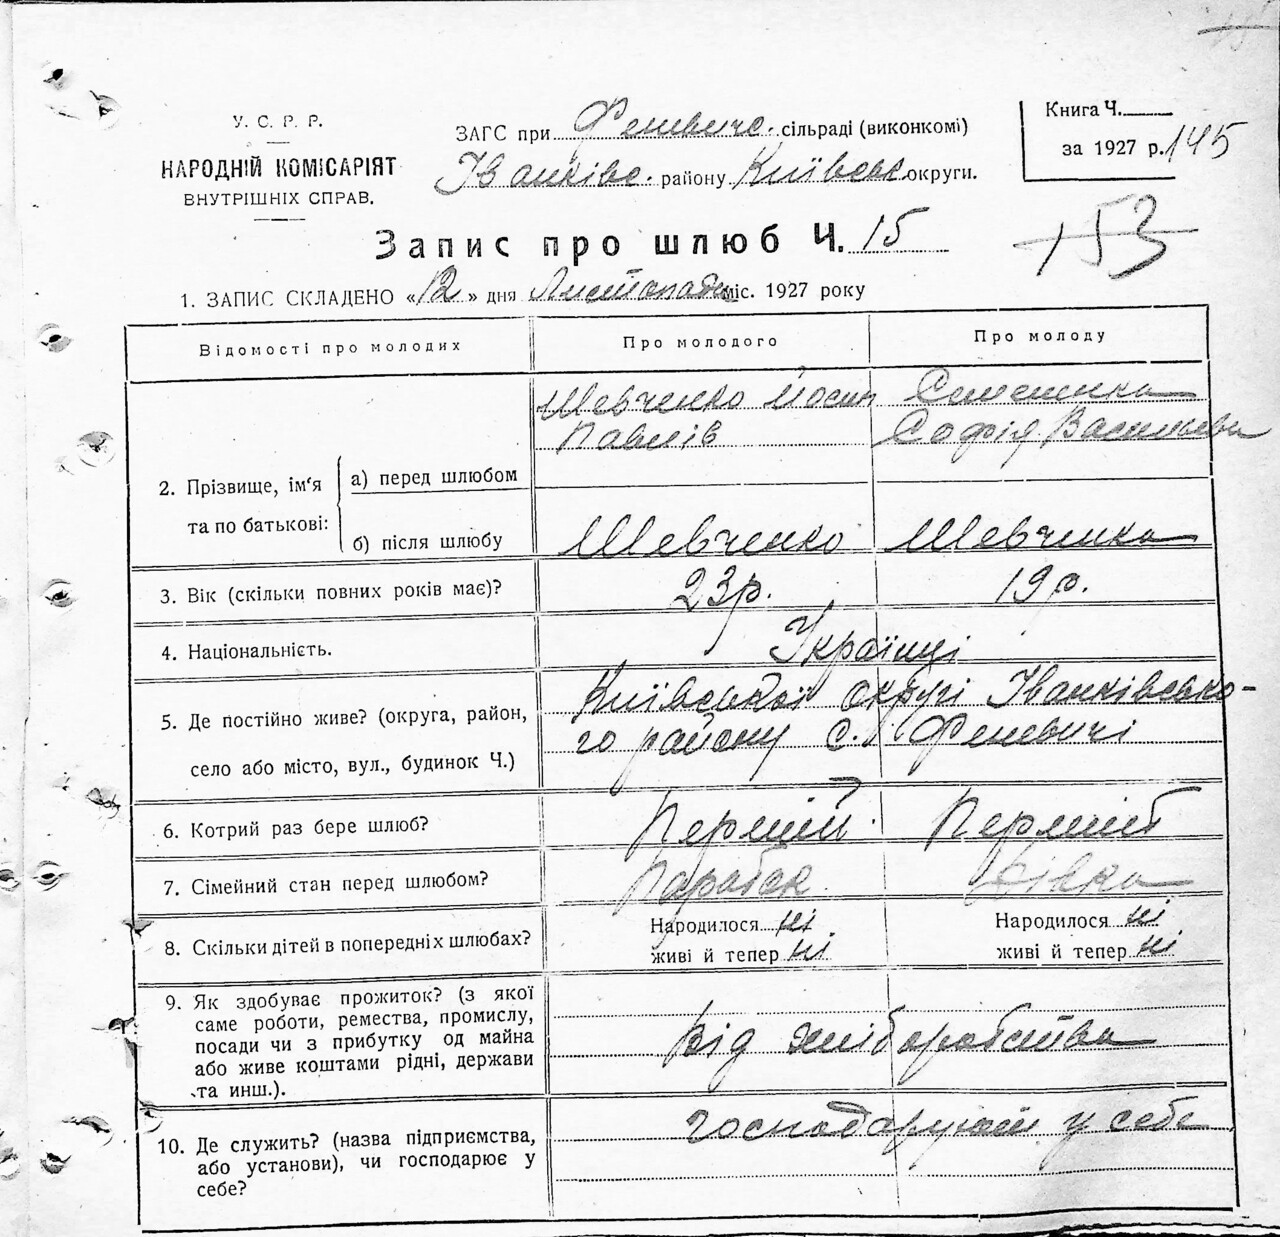 У. С. Р. Р.
НАРОДНІЙ КОМІСАРІЯТ
ВНУТРІШНІХ СПРАВ.
ЗАГС при Феневичс. сільраді (виконкомі)
Іванківс. району Київськ. округи.
Книга Ч.
за 1927 р. 145
153
Запис про шлюб Ч. 15
1. ЗАПИС СКЛАДЕНО «12» дня Листопада міс. 1927 року
Відомості про молодих
Про молодого
Про молоду
2. Прізвище, ім'я
та по батькові:
а) перед шлюбом
Шевченко Йосип
Павлів
Софія Васильева
б) після шлюбу
Шевченко
Шевченко
3. Вік (скільки повних років має)?
23 р.
19 р.
4. Національність.
Українці
5. Де постійно живе? (округа, район,
село або місто, вул., будинок Ч.)
Київської округі Іванківсько-
го району с. Феневичі
6. Котрий раз бере шлюб?
Перший
Перший
7. Сімейний стан перед шлюбом?
Парубок
Дівка
8. Скільки дітей в попередніх шлюбах?
Народилося ні
живі й тепер ні
Народилося ні
живі й тепер ні
9. Як здобуває прожиток? (з якої
саме роботи, ремества, промислу,
посади чи з прибутку од майна
або живе коштами рідні, держави
та инш.).
Від хліборобства
10. Де служить? (назва підприємства,
або установи), чи господарює у
себе?
господарюют у себе